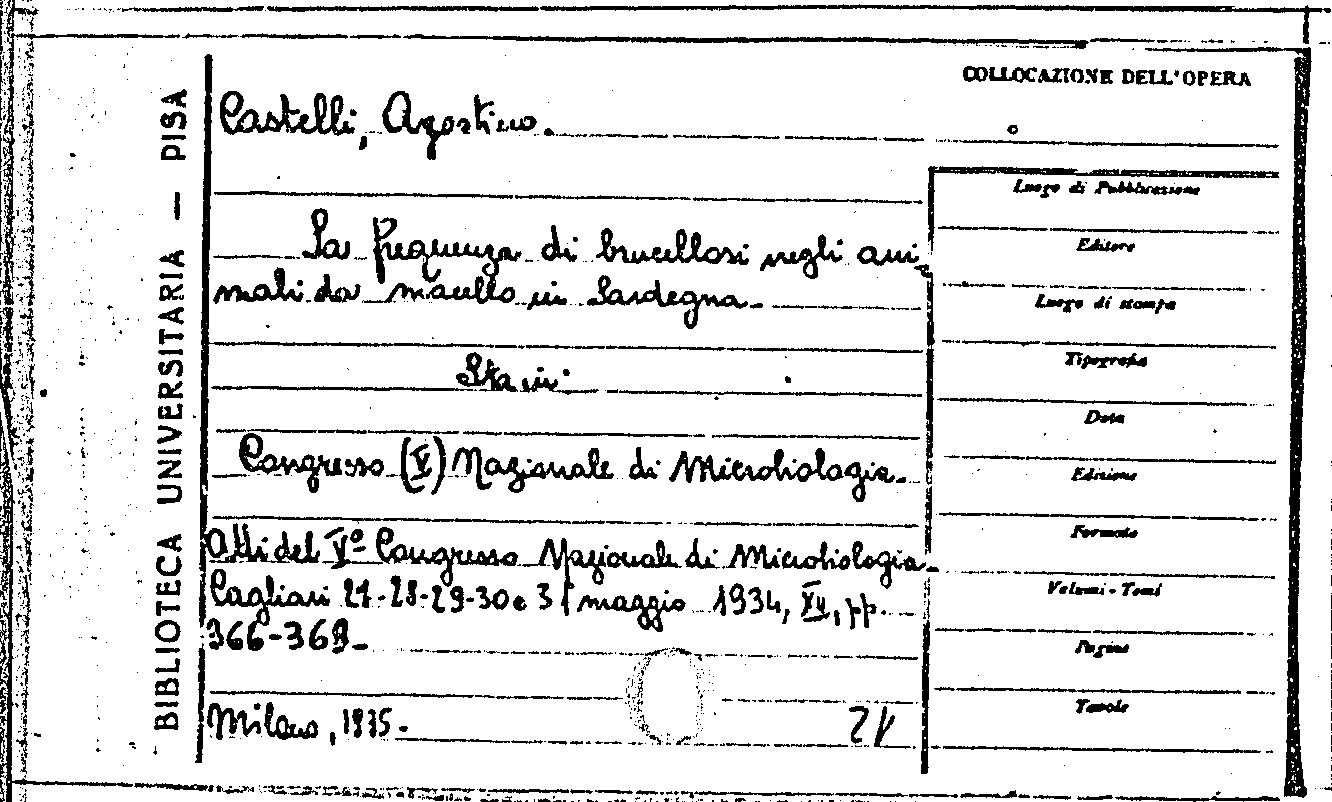 BIBLIOTECA UNIVERSITARIA — PISA
COLLOCAZIONE DELL'OPERA
Castelli, Agostino.
La frequenza di brucellosi negli ani-
mali da macello in Sardegna.
Sta in:
Congresso (V) Nazionale di Microbiologia.
Atti del V° Congresso Nazionale di Microbiologia.
Cagliari 27-28-29-30 e 31 maggio 1934, XII, pp.
366-369.
Milano, 1935.
Luogo di Pubblicazione
Editore
Luogo di stampa
Tipografia
Data
Edizione
Formato
Volumi - Tomi
Pagine
Tavole